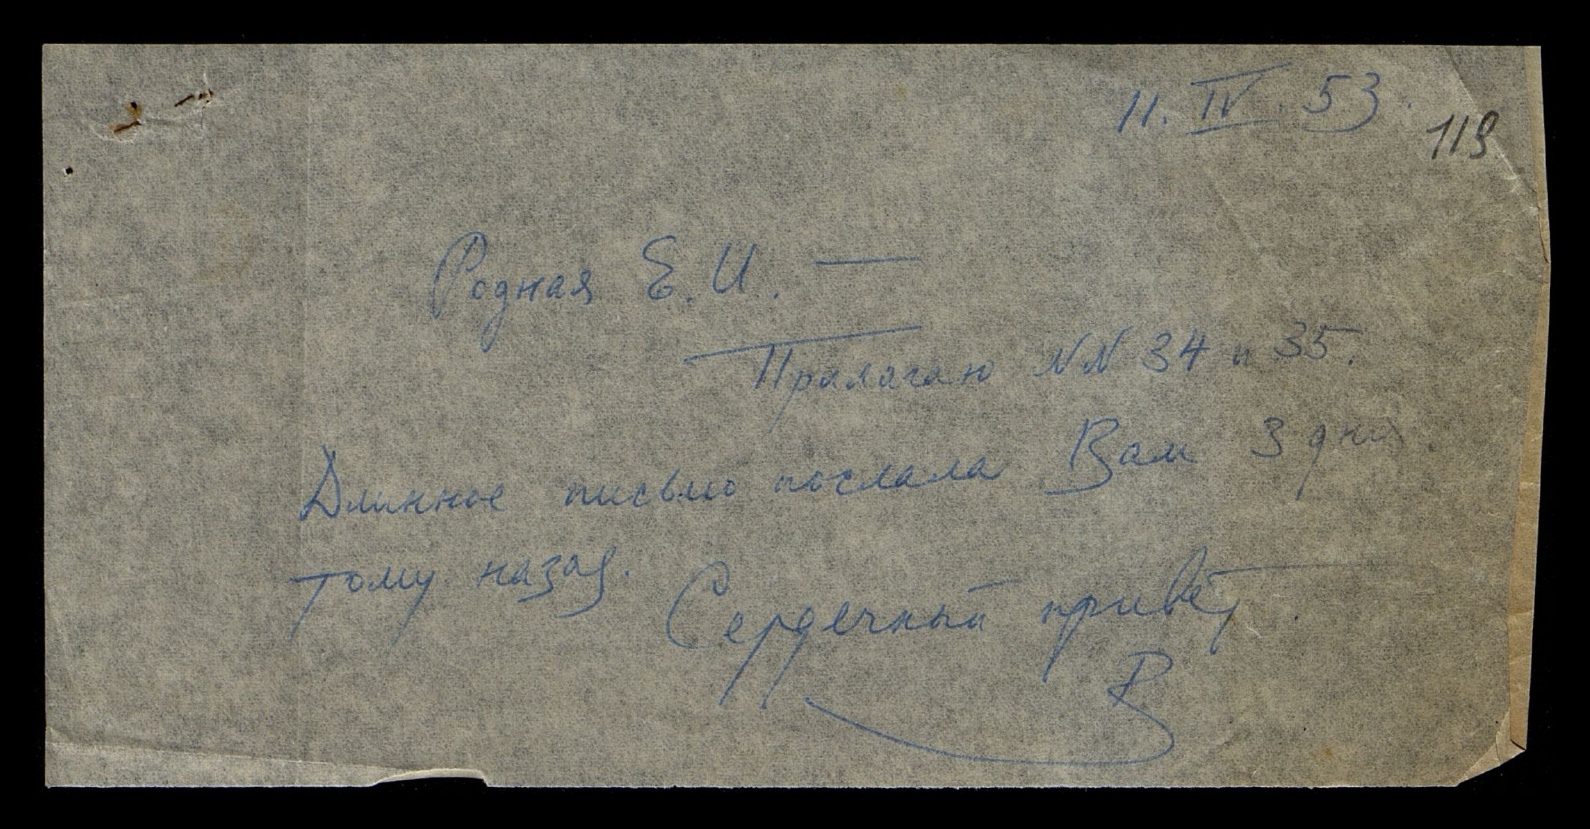 11. IV. 53.
119
Родная Е. И. —
Прилагаю NN 34 и 35.
Длинное письмо послала Вам 3 дня
тому назад.
Сердечный привет
В